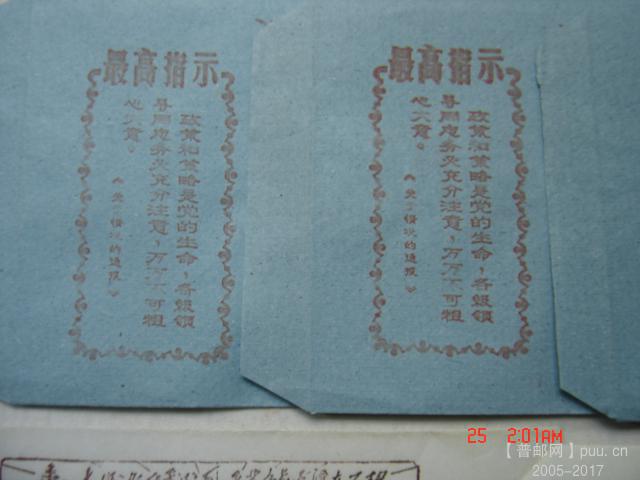 最高指示
政策和策略是党的生命，各级领
导同志务必充分注意，万万不可粗
心大意。
《关于情况的通报》
最高指示
政策和策略是党的生命，各级领
导同志务必充分注意，万万不可粗
心大意。
《关于情况的通报》
25 2:01AM
【普邮网】puu.cn
2005-2017